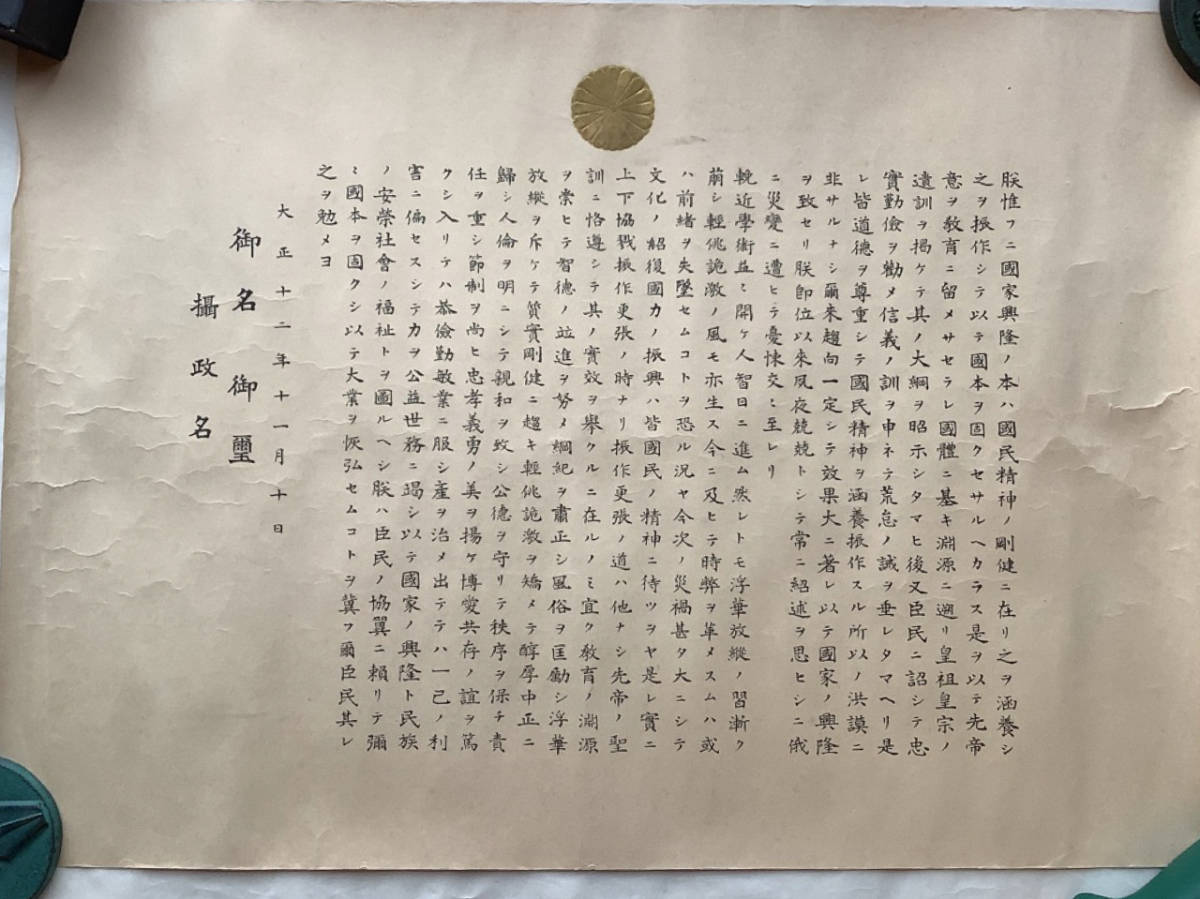 朕惟フニ國家興隆ノ本ハ國民精神ノ剛健ニ在リ之ヲ涵養シ
之ヲ振作シテ以テ國本ヲ固クセサルヘカラス是ヲ以テ先帝
意ヲ教育ニ留メサセラレ國體ニ基キ淵源ニ遡リ皇祖皇宗ノ
遺訓ヲ掲ケテ其ノ大綱ヲ昭示シタマヒ後又臣民ニ詔シテ忠
實勤儉ヲ勸メ信義ノ訓ヲ申ネテ荒怠ノ誡ヲ垂レタマヘリ是
レ皆道德ヲ尊重シテ國民精神ヲ涵養振作スル所以ノ洪謨ニ
非サルナシ爾來趨向一定シテ效果大ニ著レ以テ國家ノ興隆
ヲ致セリ朕即位以來夙夜兢兢トシテ常ニ紹述ヲ思ヒシニ俄
ニ災變ニ遭ヒテ憂悚交〻至レリ
輓近學術益〻開ケ人智日ニ進ム然レトモ浮華放縱ノ習漸ク
萠シ輕佻詭激ノ風モ亦生ス今ニ及ヒテ時弊ヲ革メスムハ或
ハ前緒ヲ失墜セムコトヲ恐ル況ヤ今次ノ災禍甚タ大ニシテ
文化ノ紹復國力ノ振興ハ皆國民ノ精神ニ待ツヲヤ是レ實ニ
上下協戮振作更張ノ時ナリ振作更張ノ道ハ他ナシ先帝ノ聖
訓ニ恪遵シテ其ノ實效ヲ舉クルニ在ルノミ宜ク教育ノ淵源
ヲ崇ヒテ智德ノ竝進ヲ努メ綱紀ヲ肅正シ風俗ヲ匡勵シ浮華
放縱ヲ斥ケテ質實剛健ニ趨キ輕佻詭激ヲ矯メテ醇厚中正ニ
歸シ人倫ヲ明ニシテ親和ヲ致シ公德ヲ守リテ秩序ヲ保チ責
任ヲ重シ節制ヲ尚ヒ忠孝義勇ノ美ヲ揚ケ博愛共存ノ誼ヲ篤
クシ入リテハ恭儉勤敏業ニ服シ產ヲ治メ出テテハ一己ノ利
害ニ偏セスシテ力ヲ公益世務ニ竭シ以テ國家ノ興隆ト民族
ノ安榮社會ノ福祉トヲ圖ルヘシ朕ハ臣民ノ協翼ニ賴リテ彌
〻國本ヲ固クシ以テ大業ヲ恢弘セムコトヲ冀フ爾臣民其レ
之ヲ勉メヨ
大正十二年十一月十日
御名御璽
攝政名